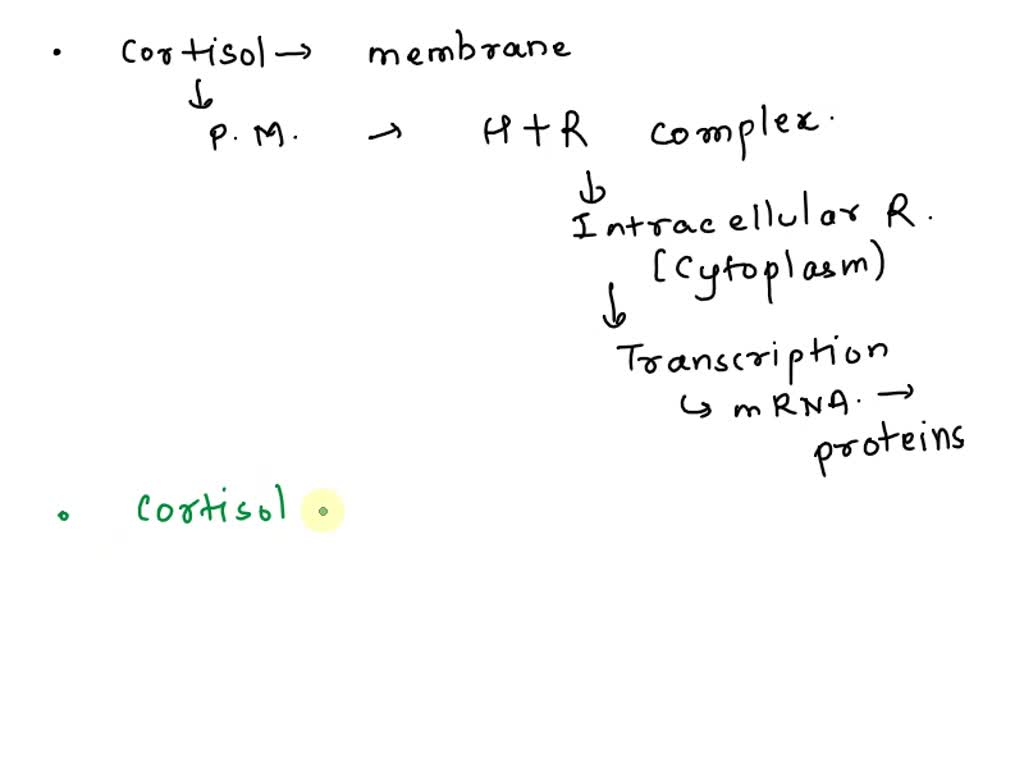 • Cortisol → membrane
↓
P. M. → H + R complex.
↓
Intracellular R.
[Cytoplasm)
↓
Transcription
↳ mRNA. →
proteins
• Cortisol